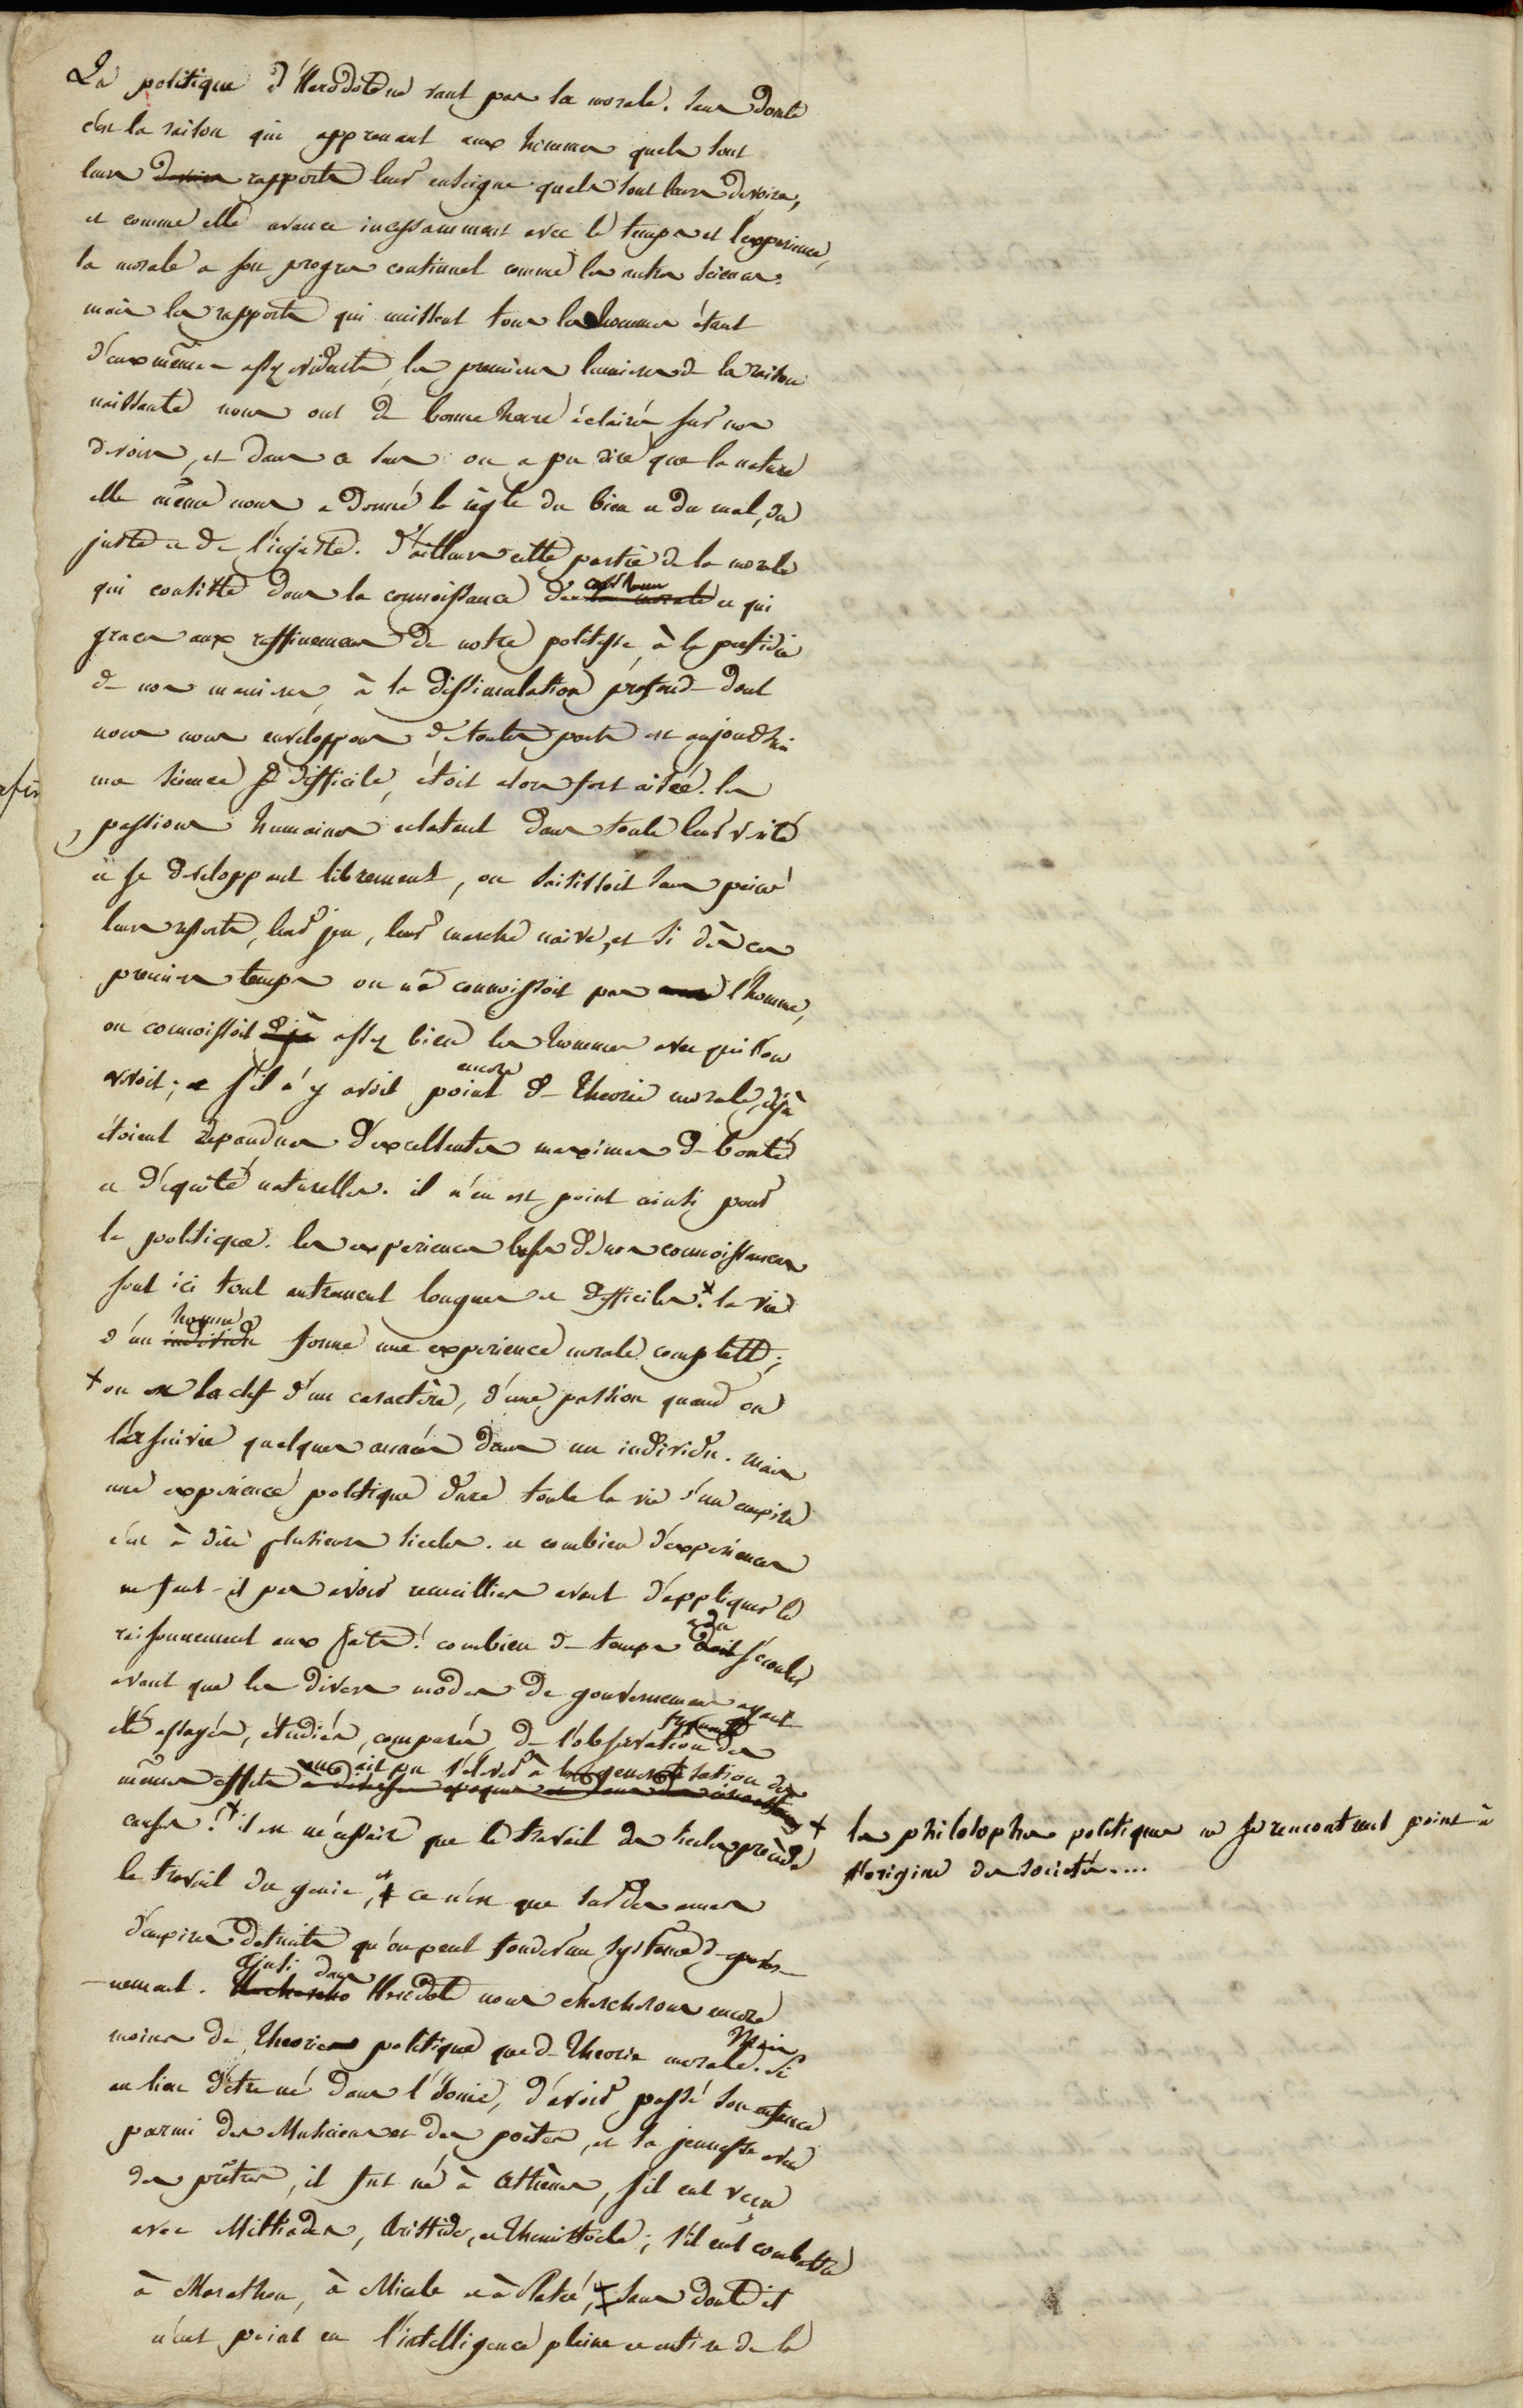 La politique d'Herodote ne vaut pas sa morale. sans doute
c'est la raison qui apprenant aux hommes quels sont
leurs devoirs rapports leur enseigne quels sont leurs devoirs,
et comme elle avance incessamment avec le temps et l'experience,
la morale a son progres continuel comme les autres sciences.
mais les rapports qui unissent tous les hommes étant
d'eux mêmes assez evidents, les premieres lumieres de la raison
naissante nous ont de bonne heure éclairés sur nos
devoirs, et dans ce sens on a pu dire que la nature
elle même nous a donné la règle du bien et du mal, du
juste et de l'injuste. d'ailleurs cette partie de la morale
qui consiste dans la connoissance des la morale et qui
graces aux raffinemens de notre politesse, à la perfidie
de nos manieres, à la dissimulation profonde dont
nous nous enveloppons de toutes parts est aujourd'hui
une science si difficile, étoit alors fort aisée. les
passions humaines eclatant dans toute leur verité
et se developpant librement, on saisissoit sans peine
leurs efforts, leur jeu, leur marche naïve, et si dès ces
premiers temps on ne connoissoit pas l'homme,
on connoissoit déjà assez bien les hommes avec qui l'on
vivoit; et s'il n'y avoit encore point de theorie morale, déjà
étoient repandues d'excellentes maximes de bonté
et d'équité naturelles. il n'en est point ainsi pour
la politique. les experiences bases de nos connoissances
sont ici tout autrement longues et difficiles. x la vie
d'un individu homme forme une experience morale complette;
x on a la clef d'un caractère, d'une passion quand on
l'a suivie quelques années dans un individu. mais
une experience politique dure toute la vie d'un empire
c'est à dire plusieurs siecles. et combien d'experiences
ne faut-il pas avoir recueillies avant d'appliquer le
raisonnement aux faits! combien de temps doit a du s'écouler
avant que les divers modes de gouvernemens ayant
été essayés, étudiés, comparés, de l'observation des
mêmes effets on ait pu s'élever à la generalisation des
causes! x il est necessaire que le travail des siecles précède
x les philosophes politiques ne se rencontrent point à
l'origine des societés....
le travail du genie, et ce n'est que sur des ruines
d'empires detruits qu'on peut fonder un systeme de gouver-
-nement. Ainsi dans Herodote nous chercherons encore
moins de theorie politique que de theorie morale. Mais si
au lieu d'être né dans l'ionie, d'avoir passé son enfance
parmi des Musiciens et des poètes, et sa jeunesse avec
des prêtres, il fut né à Athènes, s'il eut vécu
avec Miltiades, Aristide, et Themistocle; s'il eut combattu
à Marathon, à Micale et à Platée, sans doute il
n'eut point eu l'intelligence pleine et entiere de la